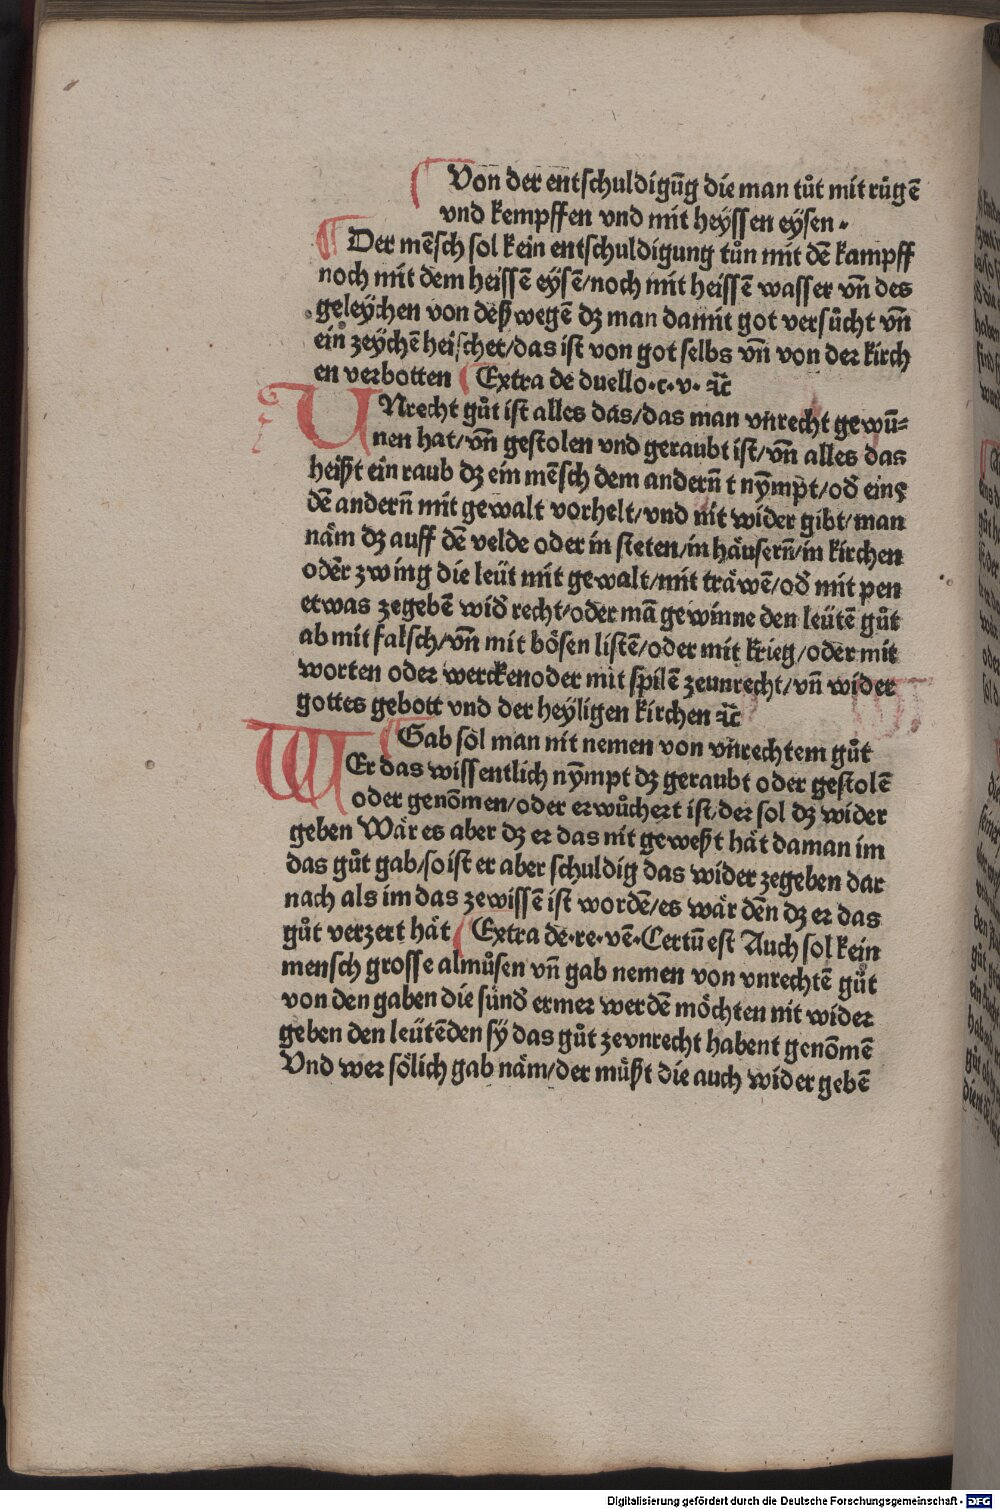 Von der entschuldigūg die man tůt mit růgē
vnd kempffen vnd mit heyssen eysen.
Der mēsch sol kein entschuldigung tůn mit dē kampff
noch mit dem heissē eysē/noch mit heissē wasser vn̄ des
geleychen von deß wegē dz man damit got versůcht vn̄
ein zeychē heischet/das ist von got selbs vn̄ von der kirch
en verbotten Extra de duello.c.v. ꝛc̄
UNrecht gůt ist alles das/das man vnrecht gewū⸗
nen hat/vn̄ gestolen vnd geraubt ist/vn̄ alles das
heißt ein raub dz ein mēsch dem andern̄ t nympt/od̄ eins
dē andern̄ mit gewalt vorhelt/vnd nit wider gibt/man
näm dz auff dē velde oder in steten/in häusern̄/in kirchen
odēr zwing die leüt mit gewalt/mit träwē/od̄ mit pen
etwas zegebē wid̄ recht/oder mā gewinne den leütē gůt
ab mit falsch/vn̄ mit bösen listē/oder mit krieg/oder mit
worten oder werckenoder mit spilē zeunrecht/vn̄ wider
gottes gebott vnd der heyligen kirchen ꝛc̄
Gab sol man nit nemen von vnrechtem gůt
WEr das wissentlich nympt dz geraubt oder gestolē
oder genōmen/oder erwůchert ist/der sol dz wider
geben Wär es aber dz er das nit geweßt hät daman im
das gůt gab/so ist er aber schuldig das wider zegeben dar
nach als im das zewissē ist wordē/es wär dēn dz er das
gůt verzert hät Extra de.re.vē.Certū est Auch sol kein
mensch grosse almůsen vn̄ gab nemen von vnrechtē gůt
von den gaben die sünd̄ ermer werdē möchten nit wider
geben den leütēden sy das gůt zevnrecht habent genōmē
Vnd wer sölich gab näm/der müßt die auch wider gebē
Digitalisierung gefördert durch die Deutsche Forschungsgemeinschaft - DFG